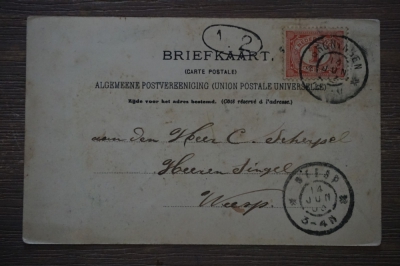 1.2
BRIEFKAART.
(CARTE POSTALE)
ALGEMEENE POSTVEREENIGING (UNION POSTALE UNIVERSELLE)
Zijde voor het adres bestemd. (Côté réservé à l'adresse.)
aan den Heer C. Scherpel
Heeren Singel
Weesp.
WEESP
14
JUN
3-4N